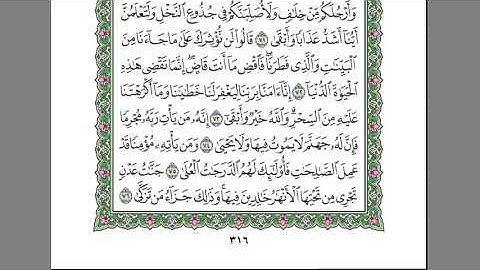 وَأَرْجُلَكُم مِّنْ خِلَٰفٍ وَلَأُصَلِّبَنَّكُمْ فِي جُذُوعِ ٱلنَّخْلِ وَلَتَعْلَمُنَّ
أَيُّنَآ أَشَدُّ عَذَابًا وَأَبْقَىٰ ٧١ قَالُوا۟ لَن نُّؤْثِرَكَ عَلَىٰ مَا جَآءَنَا مِنَ
ٱلْبَيِّنَٰتِ وَٱلَّذِي فَطَرَنَا ۖ فَٱقْضِ مَآ أَنتَ قَاضٍ ۖ إِنَّمَا تَقْضِي هَٰذِهِ
ٱلْحَيَوٰةَ ٱلدُّنْيَآ ٧٢ إِنَّآ ءَامَنَّا بِرَبِّنَا لِيَغْفِرَ لَنَا خَطَٰيَٰنَا وَمَآ أَكْرَهْتَنَا
عَلَيْهِ مِنَ ٱلسِّحْرِ ۗ وَٱللَّهُ خَيْرٌ وَأَبْقَىٰٓ ٧٣ إِنَّهُۥ مَن يَأْتِ رَبَّهُۥ مُجْرِمًا
فَإِنَّ لَهُۥ جَهَنَّمَ لَا يَمُوتُ فِيهَا وَلَا يَحْيَىٰ ٧٤ وَمَن يَأْتِهِۦ مُؤْمِنًا قَدْ
عَمِلَ ٱلصَّٰلِحَٰتِ فَأُو۟لَٰٓئِكَ لَهُمُ ٱلدَّرَجَٰتُ ٱلْعُلَىٰ ٧٥ جَنَّٰتُ عَدْنٍ
تَجْرِي مِن تَحْتِهَا ٱلْأَنْهَٰرُ خَٰلِدِينَ فِيهَا ۚ وَذَٰلِكَ جَزَآءُ مَن تَزَكَّىٰ ٧٦
٣١٦